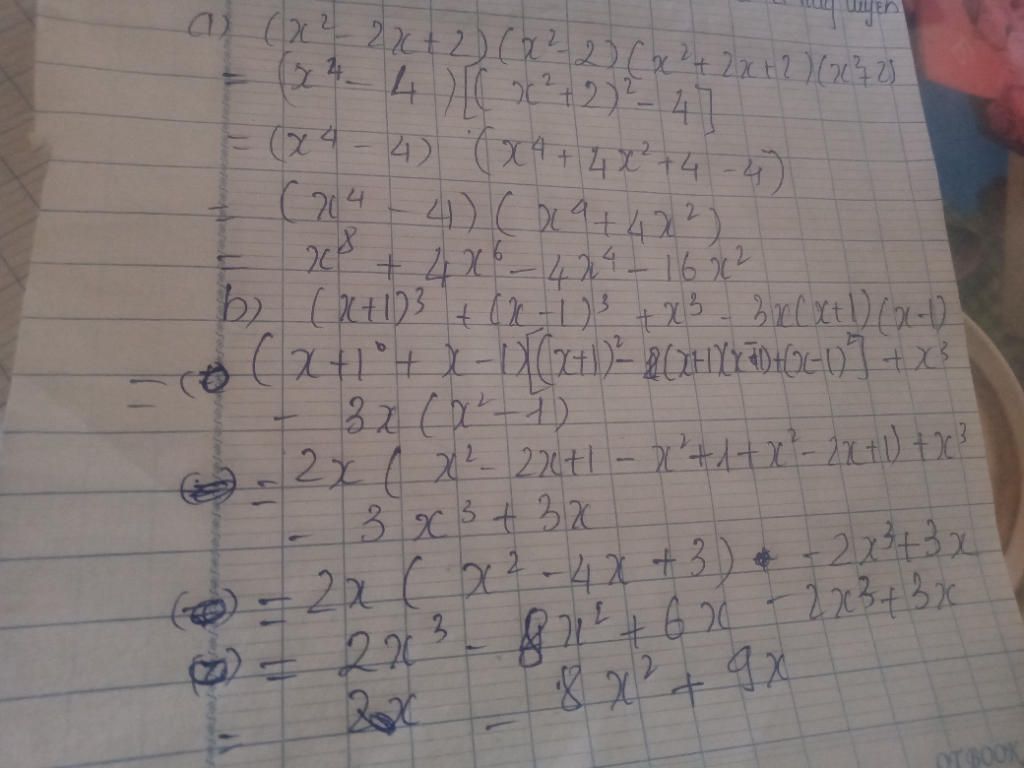 a) (x² - 2x + 2) (x² - 2) (x² + 2x + 2) (x² + 2)
= (x⁴ - 4) [(x² + 2)² - 4]
= (x⁴ - 4) (x⁴ + 4x² + 4 - 4)
= (x⁴ - 4) (x⁴ + 4x²)
= x⁸ + 4x⁶ - 4x⁴ - 16x²
b) (x+1)³ + (x-1)³ + x³ - 3x(x+1)(x-1)
= (x+1 + x-1)[(x+1)² - (x+1)(x-1) + (x-1)²] + x³
- 3x(x² - 1)
= 2x(x² - 2x + 1 - x² + 1 + x² - 2x + 1) + x³
- 3x³ + 3x
= 2x(x² - 4x + 3) - 2x³ + 3x
= 2x³ - 8x² + 6x - 2x³ + 3x
= - 8x² + 9x